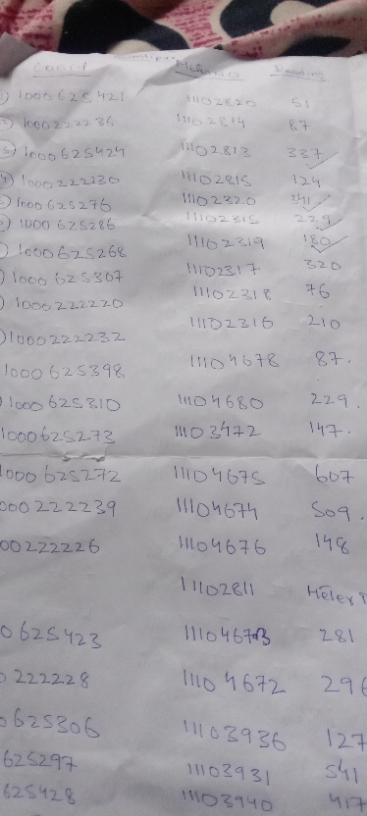 Reading
1) 1000625421 11102820 51
1000222236 11102814 87
3) 1000625424 11102813 337
4) 1000222230 11102815 124
1000625276 11102320 341
1000625286 11102315 229
1000625268 11102319 180
1000625307 11102317 320
1000222220 11102318 76
1000222232 11102316 210
1000625398 11104678 87.
1000625310 11104680 229.
1000625273 11103472 147.
1000625272 11104675 607
000222239 11104674 509.
00222226 11104676 148
11102811 Meter
0625423 281
222228 11104672 296
625306 11103936 127
625297 11103931 541
625428 11103940 417